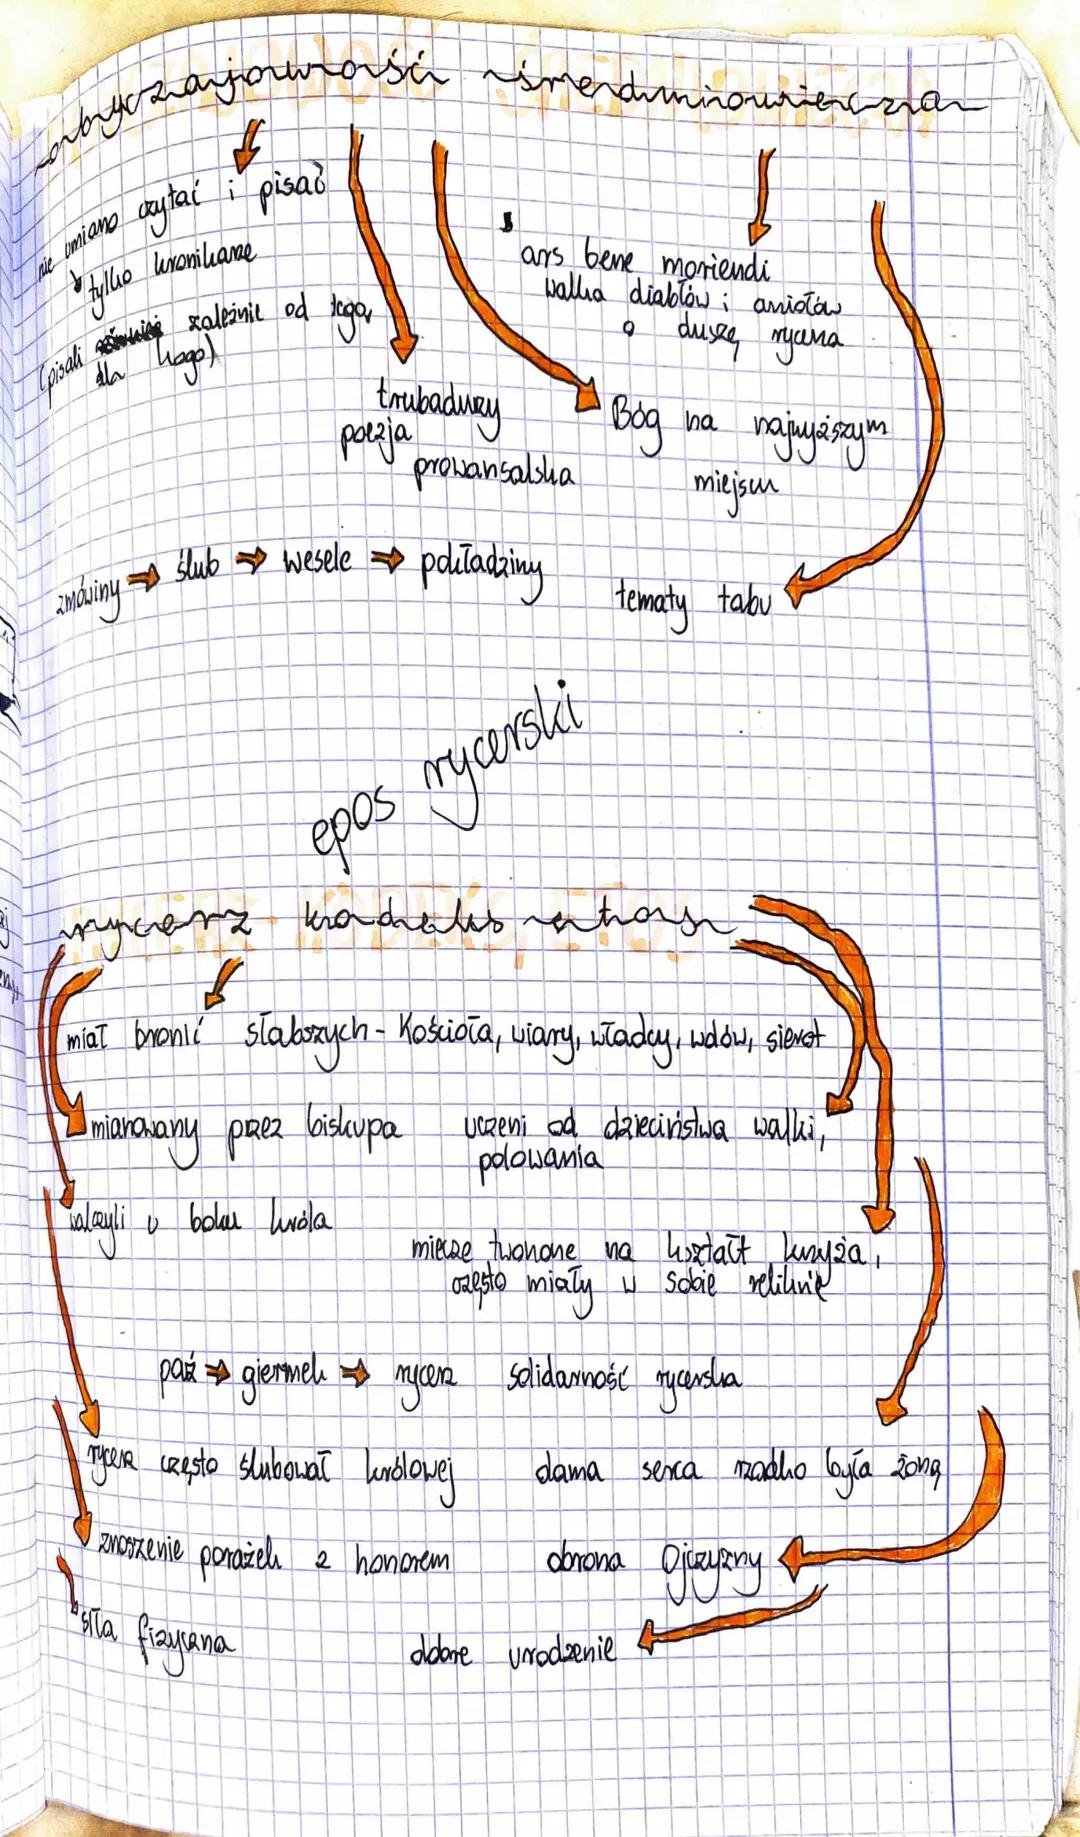 obyczajowość średniowieczna
nie umiano czytać i pisać
tylko kronikarze
(pisali zależnie od tego,
dla kogo)
trubadurzy
poezja
prowansalska
ars bene moriendi
walka diabłów i aniołów
o duszę rycerza
Bóg na najwyższym
miejscu
zmówiny → ślub → wesele → pokładziny
tematy tabu
epos rycerski
rycerz kodeks etos
miał bronić słabszych - Kościoła, wiary, władcy, wdów, sierot
mianowany przez biskupa
uczeni od dzieciństwa walki,
polowania
walczyli u boku króla
miecze tworzone na kształt krzyża,
często miały w sobie relikwie
paź → giermek → rycerz
solidarność rycerska
rycerz często ślubował królowej
dama serca rzadko była żoną
znoszenie porażek z honorem
obrona Ojczyzny
siła fizyczna
dobre urodzenie